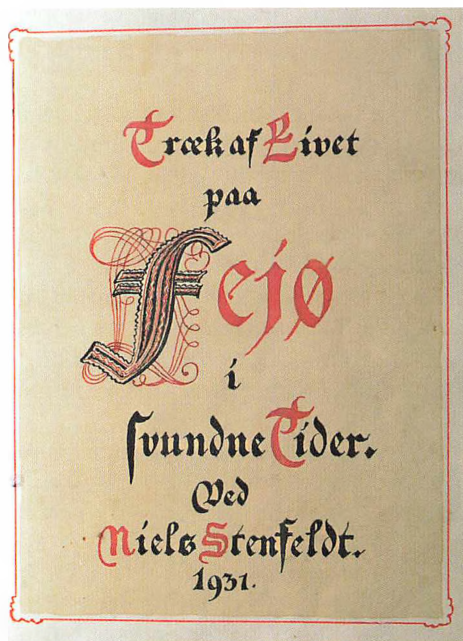 Træk af Livet
paa
Fejø
i
svundne Tider.
Ved
Niels Stenfeldt.
1931.